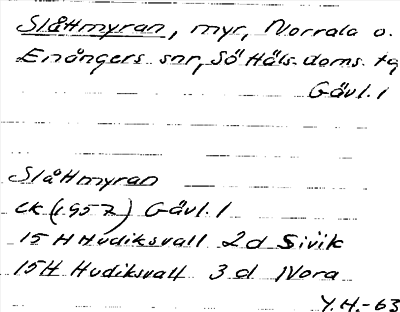 Slåttmyran, myr, Norrala o.
Enångers snr, Sö Häls. doms. tg
Gävl. l
Slåttmyran
EK (1957) Gävl. l
15 H Hudiksvall 2 d Sivik
15H Hudiksvall 3 d Nora
Y.H.-63